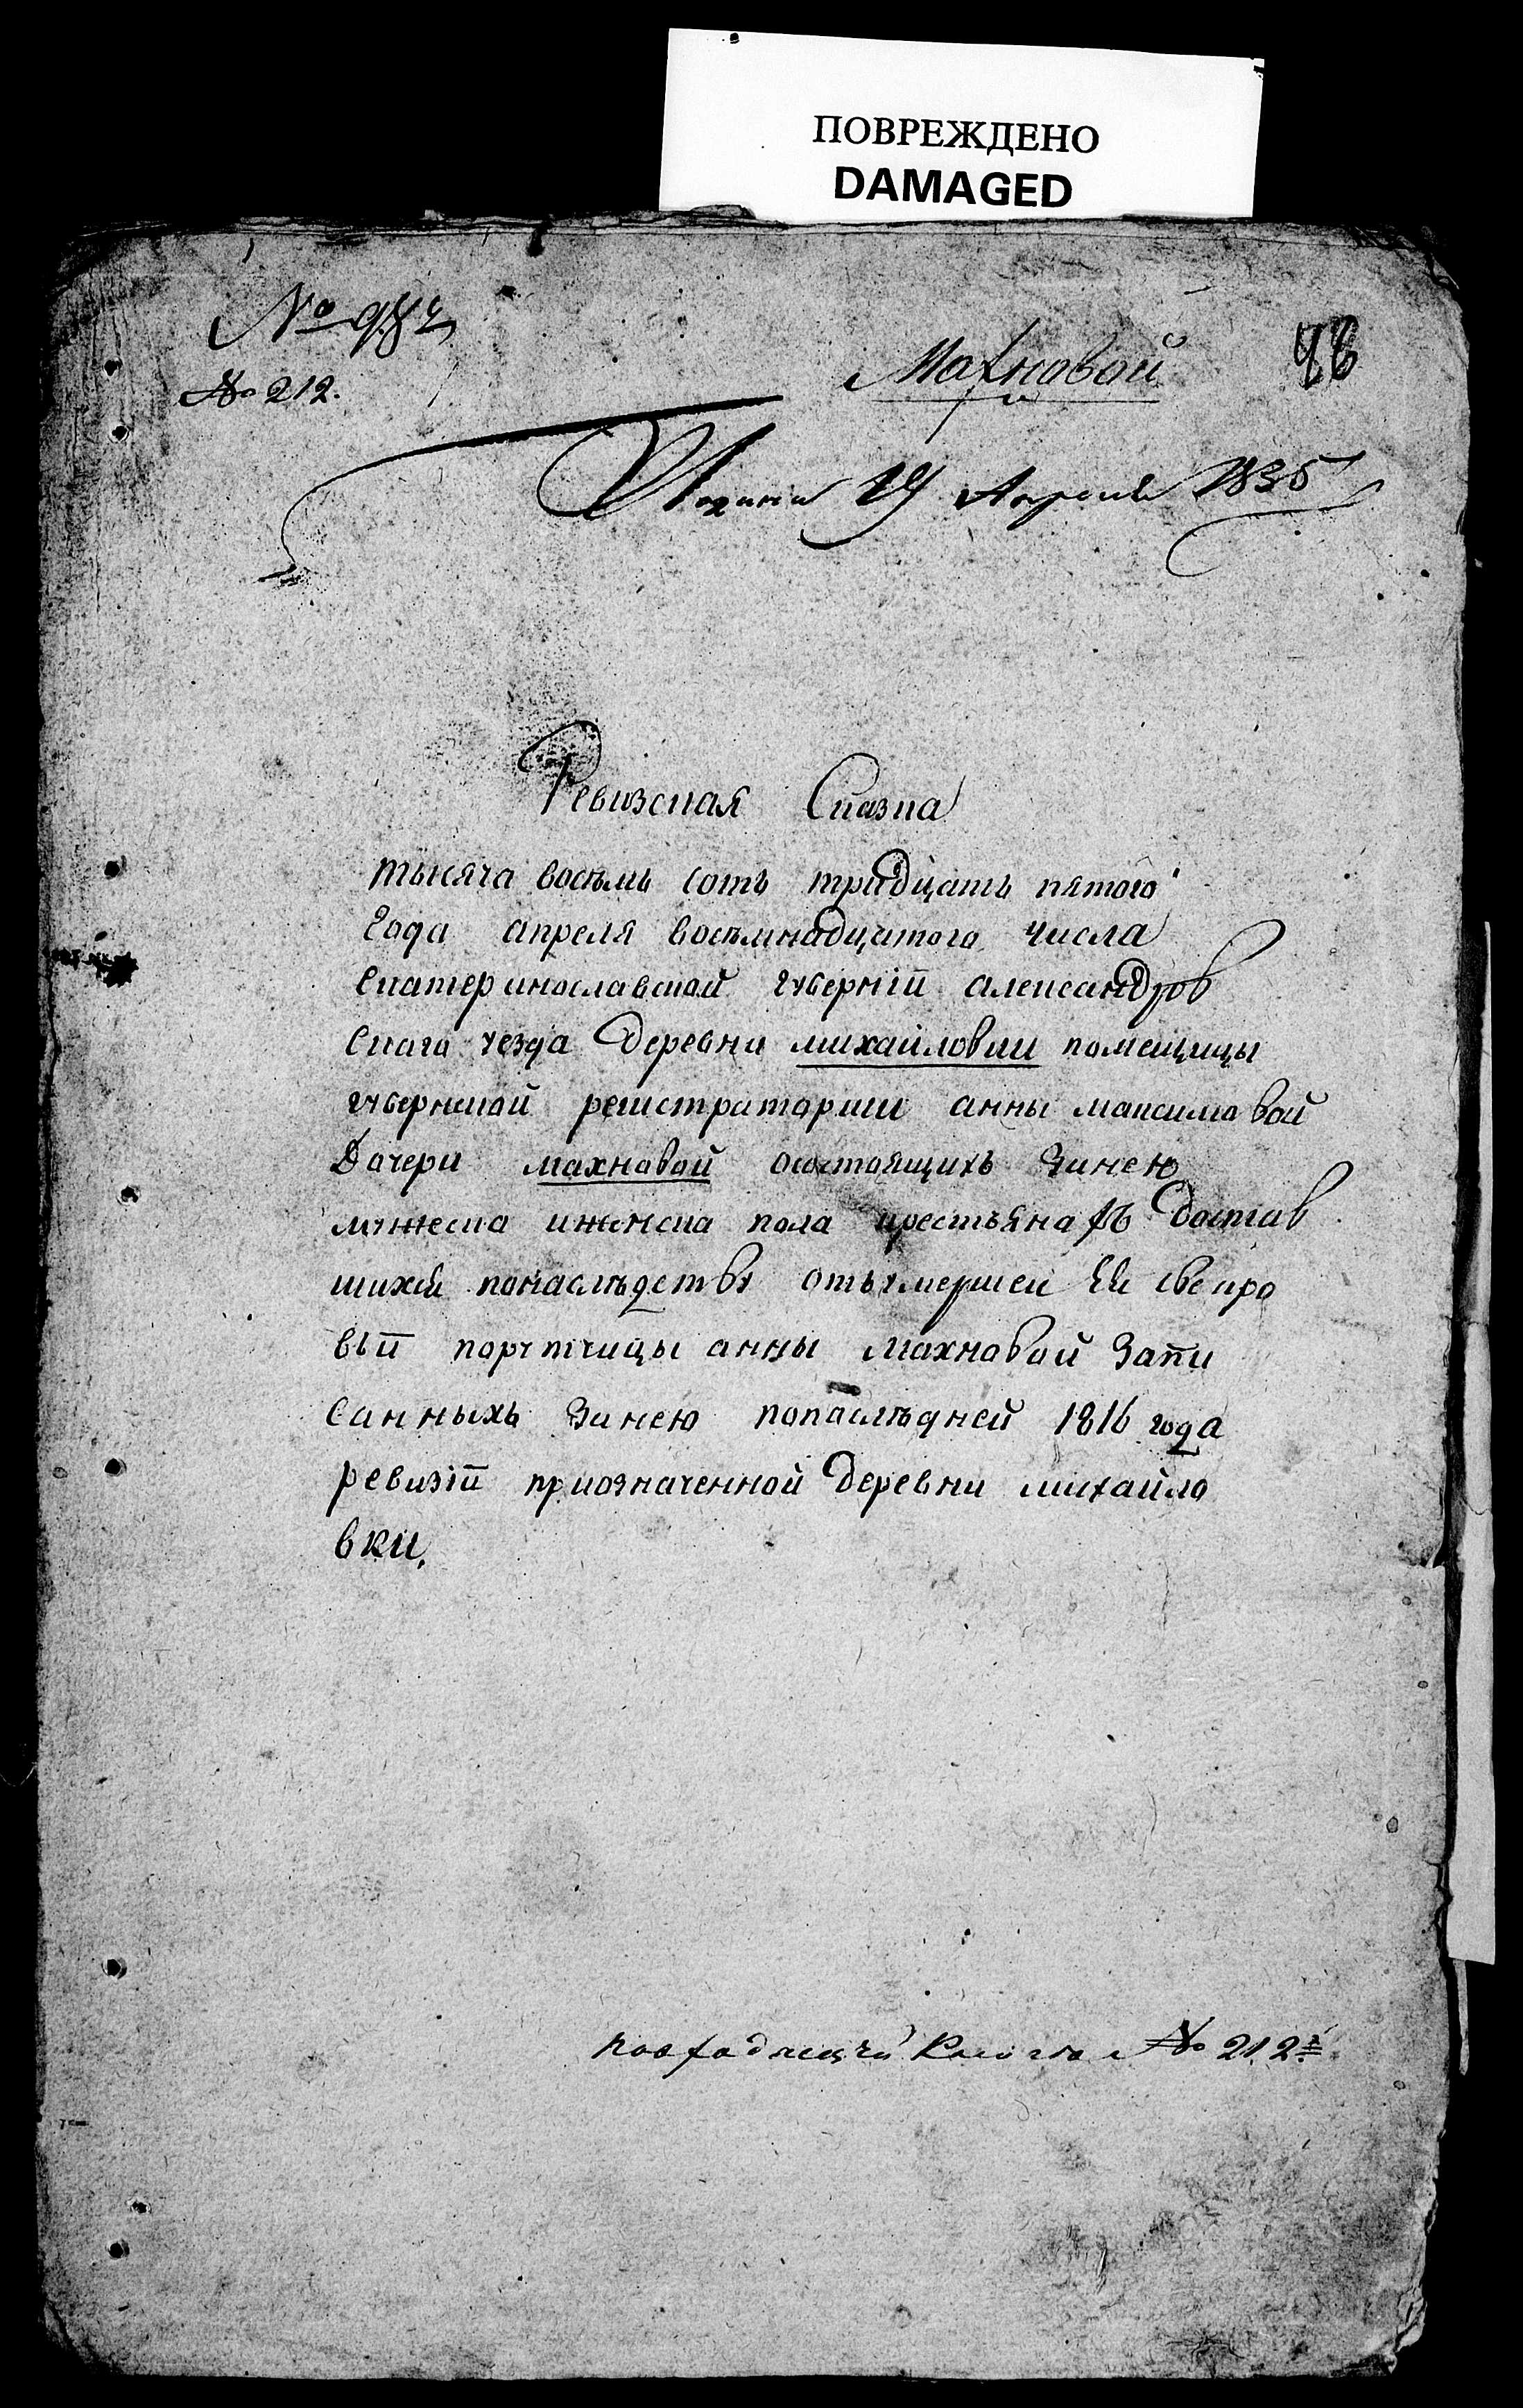 ПОВРЕЖДЕНО
DAMAGED
№ 212.
Махновой
Подана 19 Апреля 1835
Ревизская Сказка
тысяча восемь сотъ тридцать пятого
года апреля восемнадцатого числа
Екатеринославской губерніи александров
скаго уезда деревни михайловки помещицы
губернской регистраторши анны максимовой
дочери махновой осостоящихъ занею
мужеска иженска пола крестьянахъ достав
шихся понаследству отъумершей Ей свекро
выи порутчицы анны махновой запи
санныхъ занею попаслъдней 1816 года
ревизіи приозначенной деревни михайло
вки.
№ 212